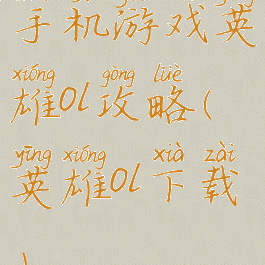 手机游戏英
xióng gōng lüè
雄OL攻略(
yīng xióng xià zài
英雄OL下载
)